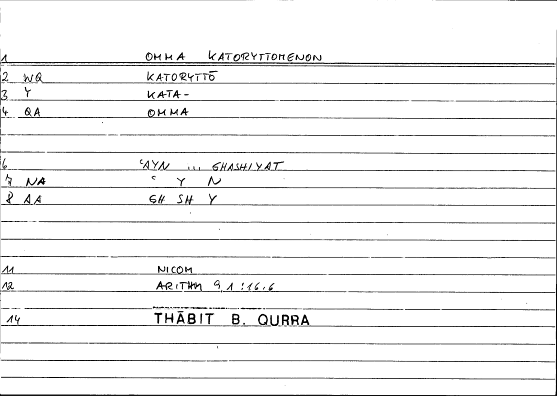 1 OMMA KATORYTTOMENON
2 WQ KATORYTTŌ
3 Y KATA-
4 QA OMMA
6 ʿAYN ... GHASHIYAT
7 NA ʿ Y N
8 AA GH SH Y
11 NICOM
12 ARITHM 9,1:16,6
14 THĀBIT B. QURRA